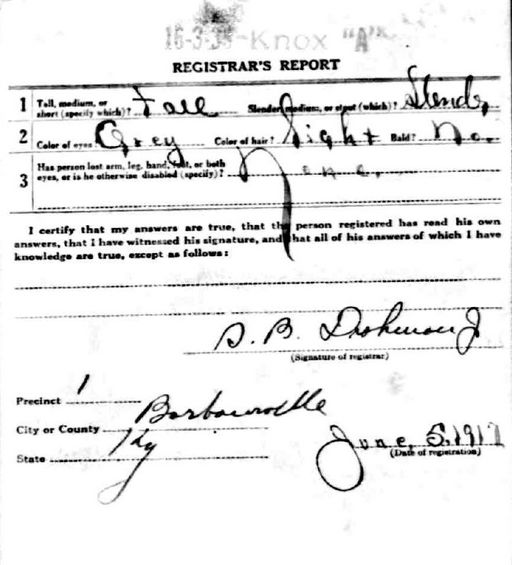 16-3-35-Knox "A"
REGISTRAR'S REPORT
1 Tall, medium, or short (specify which)? Tall Slender, medium, or stout (which)? Slender
2 Color of eyes Grey Color of hair? Light Bald? No.
3 Has person lost arm, leg, hand, foot, or both eyes, or is he otherwise disabled (specify)? None.
I certify that my answers are true, that the person registered has read his own
answers, that I have witnessed his signature, and that all of his answers of which I have
knowledge are true, except as follows:
S. B. J
(Signature of registrar)
Precinct 1
City or County Barbourville
State Ky
June, 5, 1917
(Date of registration)